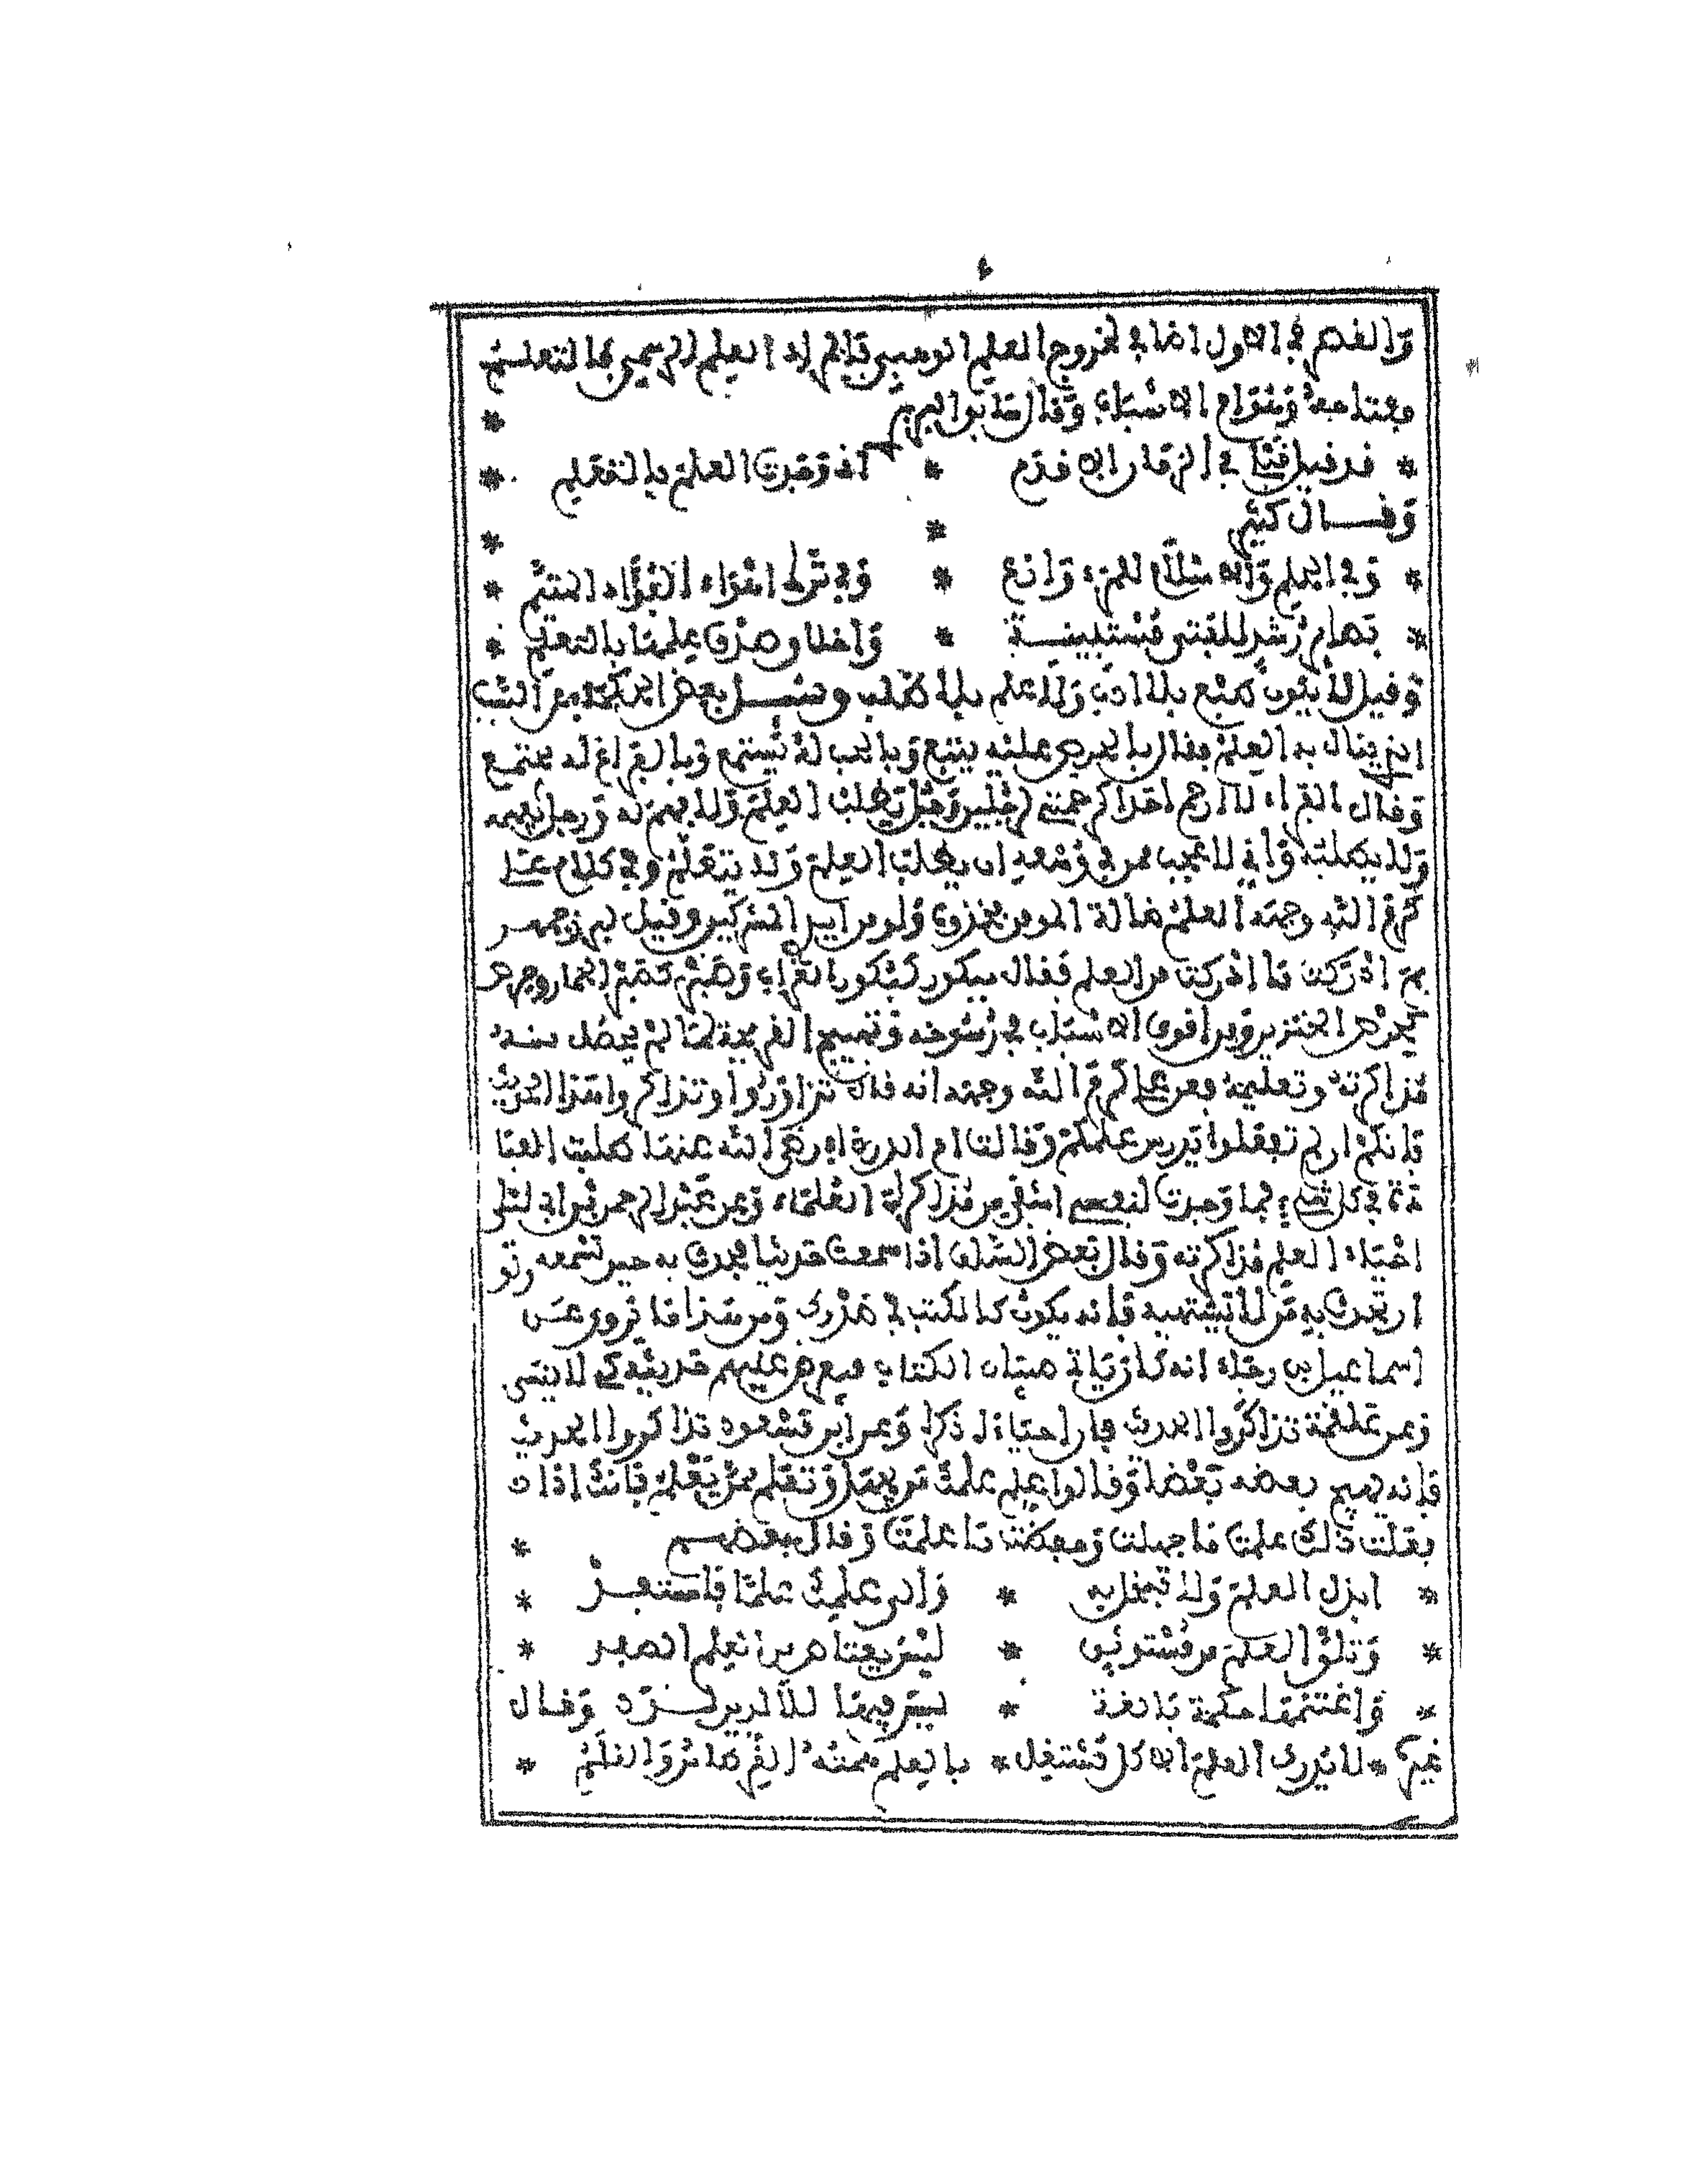 والقصر في الاول اضافي لخروج العلم الوهبي فانهم لان العلم الرسمي بالتعلم
مفتاحه وسواه الاسباب وقال سابق البربري
* قد قيل قبلنا في الزمان الاقدم * اني وجدت العلم بالتعلم *
وقال كثير * *
* وفي العلم والاسلام للمرء وازع * وفي ترك اهواء الفؤاد المتيم *
* بصائر رشد للفتى مستبينة * واخلاق صدق علمها بالتعلم *
وقيل لا يكون طبع بلا ادب ولا علم بلا طلب وسئل بعض الحكماء عن السبب
الذي ينال به العلم فقال بالحرص عليه يتبع وبالحب له يستمع وبالفراغ له يجتمع
وقال الفراء لا ارحم احدا كرحمتي لرجلين رجل يطلب العلم ولا فهم له ورجل يفهمه
ولا يطلبه واني لاعجب ممن في وسعه ان يطلب العلم ولا يتعلم وفي كلام علي
كرم الله وجهه العلم ضالة المومن فخذوه ولو من ايدي المشركين وقيل لبزرجمهر
بم ادركت ما ادركت من العلم فقال ببكور كبكور الغراب وصبر كصبر الحمار وحرص
كحرص الخنزير ومن اقوى الاسباب في رسوخه وتهييج القريحة لما لم يحصل منه
مذاكرته وتعليمه فعن علي كرم الله وجهه انه قال تزاوروا وتذاكروا هذا الحديث
فانكم ان لم تفعلوا يدرس علمكم وقالت ام الدرداء رضي الله عنها طلبت العبا
دة في كل شيء فما وجدت لنفسي اشفى من مذاكرة العلماء وعن عبد الرحمن بن ابي ليلى
احياء العلم مذاكرته وقال بعض السلف اذا سمعت حديثا فحدث به حين تسمعه ولو
ان تحدث به من لا يشتهيه فانه يكون كالكتب في صدرك ومن هذا ما يروى عن
اسماعيل بن رجاء انه كان ياتي صبيان الكتاب فيعرض عليهم حديثه كي لا ينسى
وعن علقمة تذاكروا الحديث فان احياءه ذكره وعن ابن مسعود تذاكروا الحديث
فانه يهيج بعضه بعضا وقالوا علم علمك من يجهل وتعلم ممن يعلم فانك اذا
فعلت ذلك علمت ما جهلت وحفظت ما علمت وقال بعضهم *
* ابذل العلم ولا تبخل به * والى علمك علما فاستفد *
* وتلق العلم من مستوثق * ليس يعتاض من العلم الصفد *
* واغتنمها حكمة بالغة * ليس فيها للالدين رد وقال
غيره * لا يدرك العلم الا كل مشتغل * بالعلم همته القرطاس والقلم *